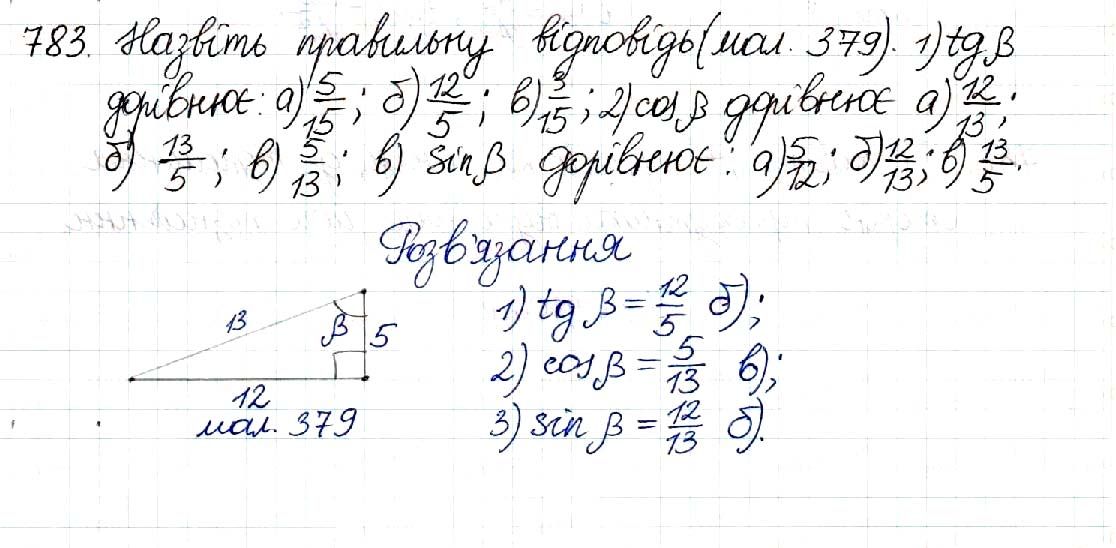 783. Назвіть правильну відповідь (мал. 379). 1) tg β
дорівнює: а) 5/15; б) 12/5; в) 3/15; 2) cos β дорівнює а) 12/13;
б) 13/5; в) 5/13; в) sin β дорівнює: а) 5/12; б) 12/13; в) 13/5.
Розв'язання
1) tg β = 12/5 б);
13
β
5
2) cos β = 5/13 в);
12
мал. 379
3) sin β = 12/13 б).